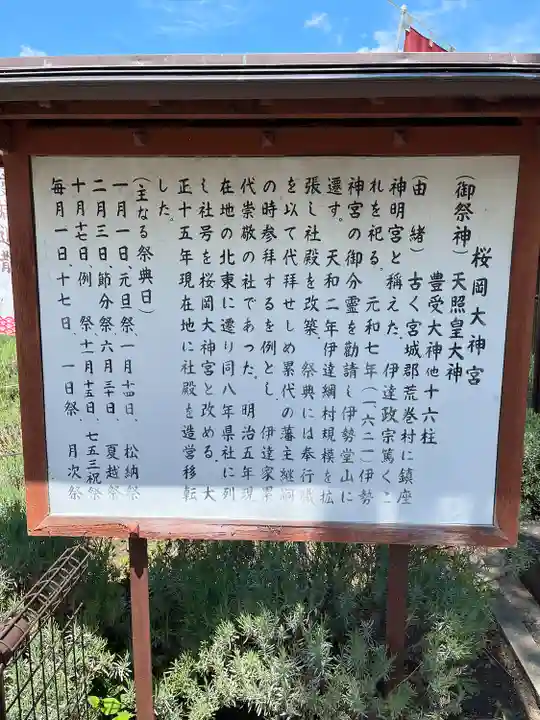 桜岡大神宮
(御祭神) 天照皇大神
豊受大神他十六柱
(由緒) 古く宮城郡荒巻村に鎮座
神明宮と称えた。伊達政宗篤くこ
れを祀る。元和七年(一六二一)伊勢
神宮の御分霊を勧請し伊勢堂山に
遷す。天和二年伊達綱村規模を拡
張し社殿を改築。祭典には奉行職
を以て代拝せしめ累代の藩主継嗣
の時参拝するを例とし、伊達家累
代崇敬の社であった。明治五年現
在地の北東に遷り同八年県社に列
し社号を桜岡大神宮と改める。大
正十五年現在地に社殿を造営移転
した。
(主なる祭典日)
一月一日、元旦祭、一月十四日、松納祭
二月三日、節分祭、六月三十日、夏越祭
十月十七日、例祭、十一月十五日、七五三祝祭
毎月一日、十七日、一日祭、月次祭